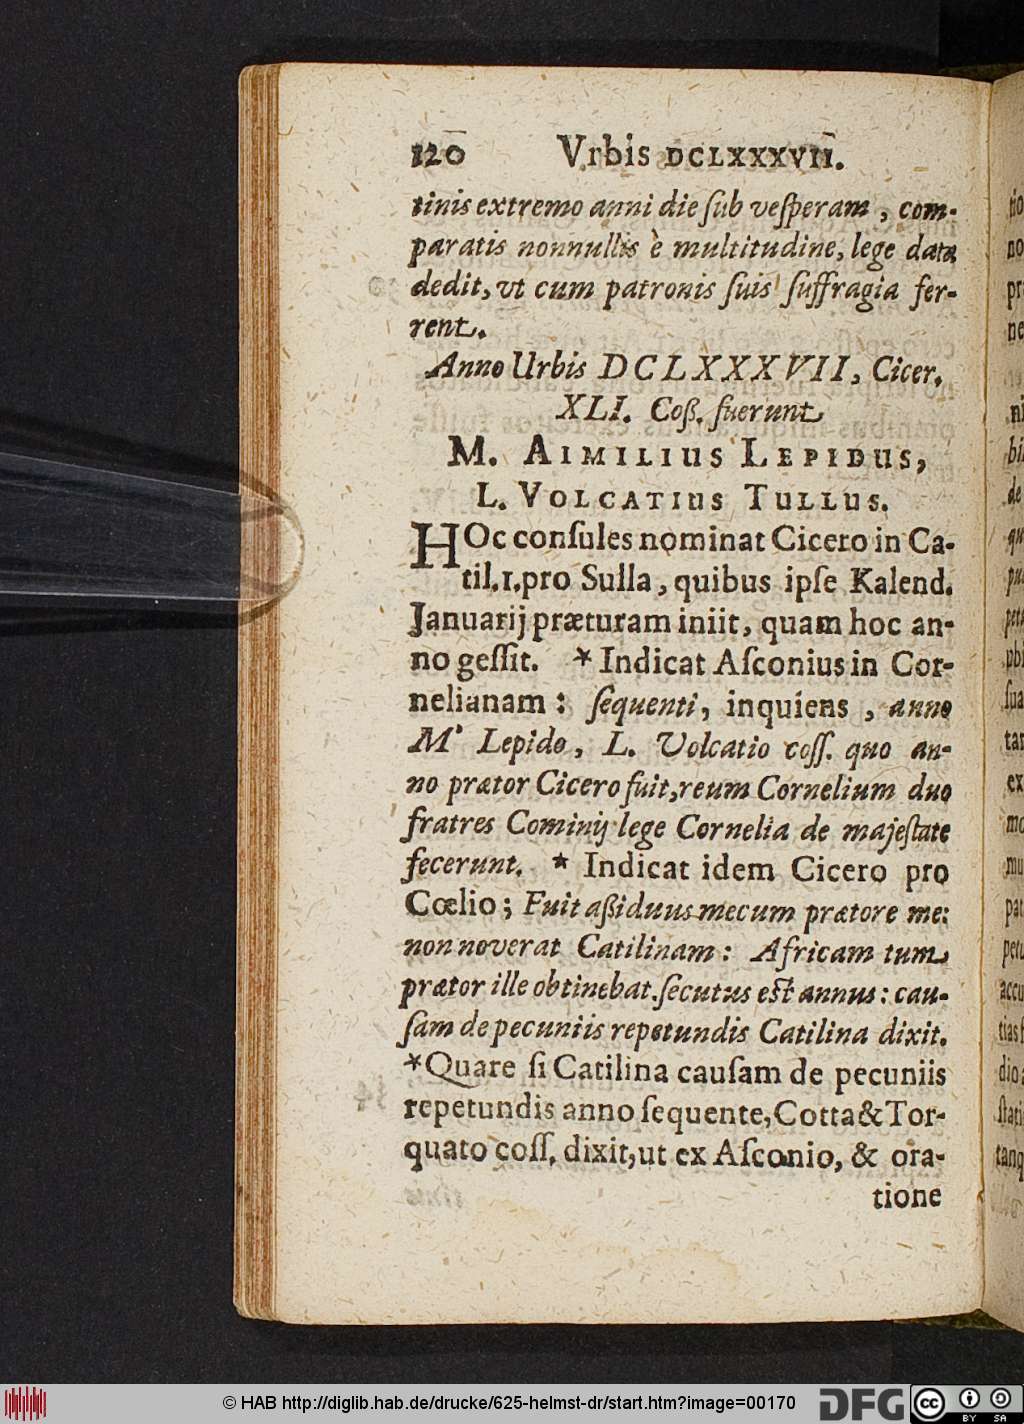 120 Vrbis DCLXXXVII.
tinis extremo anni die ſub veſperam, com-
paratis nonnullis è multitudine, lege data
dedit, vt cum patronis ſuis ſuffragia fer-
rent.
Anno Urbis DCLXXXVII, Cicer.
XLI. Coß. fuerunt
M. AIMILIUS LEPIDUS,
L. VOLCATIUS TULLUS.
HOc conſules nominat Cicero in Ca-
til. 1. pro Sulla, quibus ipſe Kalend.
Januarij præturam iniit, quam hoc an-
no geſſit. * Indicat Aſconius in Cor-
nelianam: ſequenti, inquiens, anno
M' Lepido, L. Volcatio coſſ. quo an-
no prætor Cicero fuit, reum Cornelium duo
fratres Cominij lege Cornelia de majeſtate
fecerunt. * Indicat idem Cicero pro
Cœlio; Fuit aßiduus mecum prætore me:
non noverat Catilinam: Africam tum
prætor ille obtinebat. ſecutus eſt annus: cau-
ſam de pecuniis repetundis Catilina dixit.
*Quare ſi Catilina cauſam de pecuniis
repetundis anno ſequente, Cotta & Tor-
quato coſſ, dixit, ut ex Aſconio, & ora-
tione
© HAB http://diglib.hab.de/drucke/625-helmst-dr/start.htm?image=00170
DFG
cc BY SA